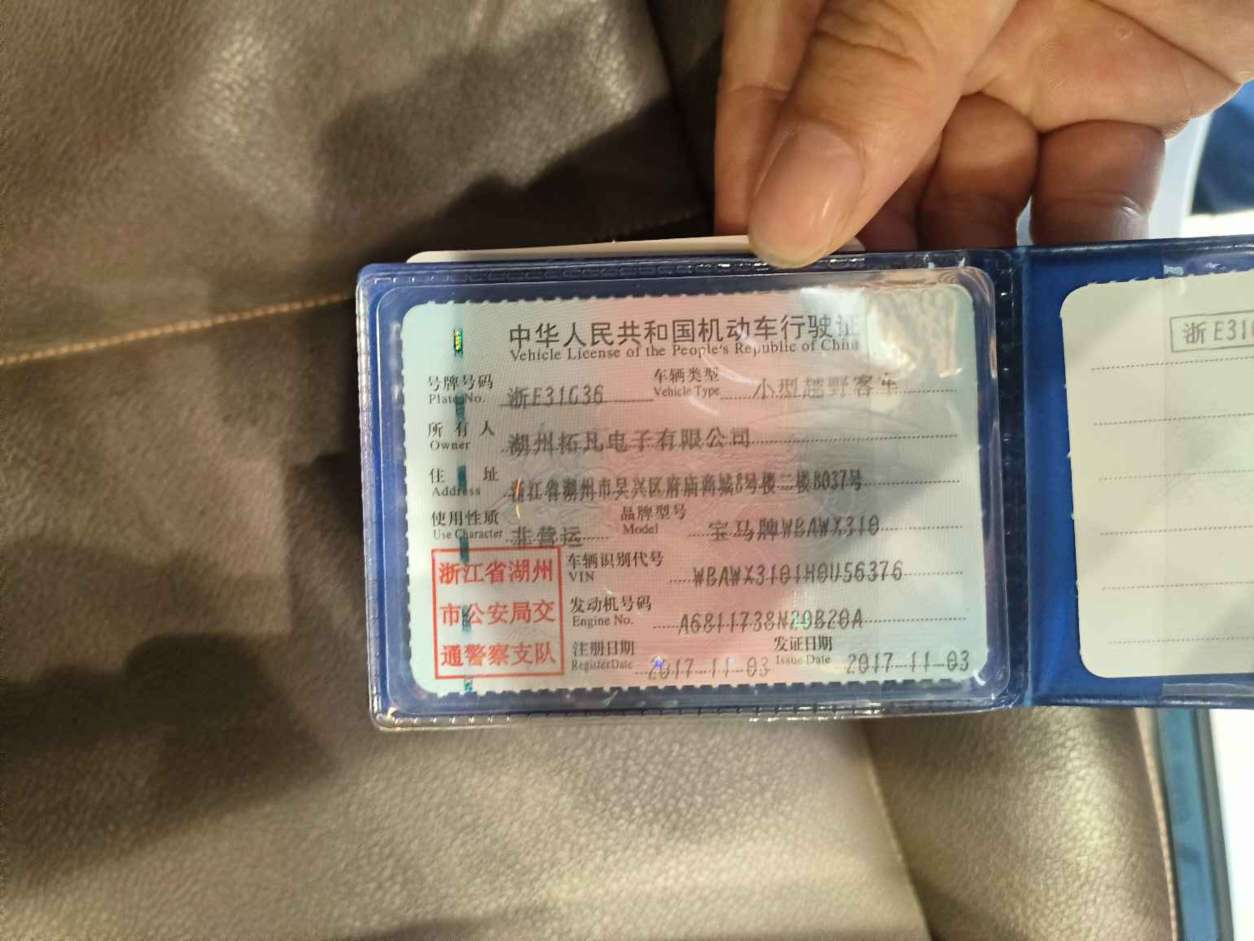 中华人民共和国机动车行驶证
Vehicle License of the People's Republic of China
号牌号码 浙E31G36 车辆类型 小型越野客车
Plate No. Vehicle Type
所有人 湖州拓凡电子有限公司
Owner
住址 浙江省湖州市吴兴区府庙商城6号楼二楼B037号
Address
使用性质 非营运 品牌型号 宝马牌WBAWX310
Use Character Model
浙江省湖州
市公安局交
通警察支队
车辆识别代号
VIN WBAWX3101H0U56376
发动机号码
Engine No. A6811738N20B20A
注册日期 2017-11-03 发证日期 2017-11-03
Register Date Issue Date
浙E31